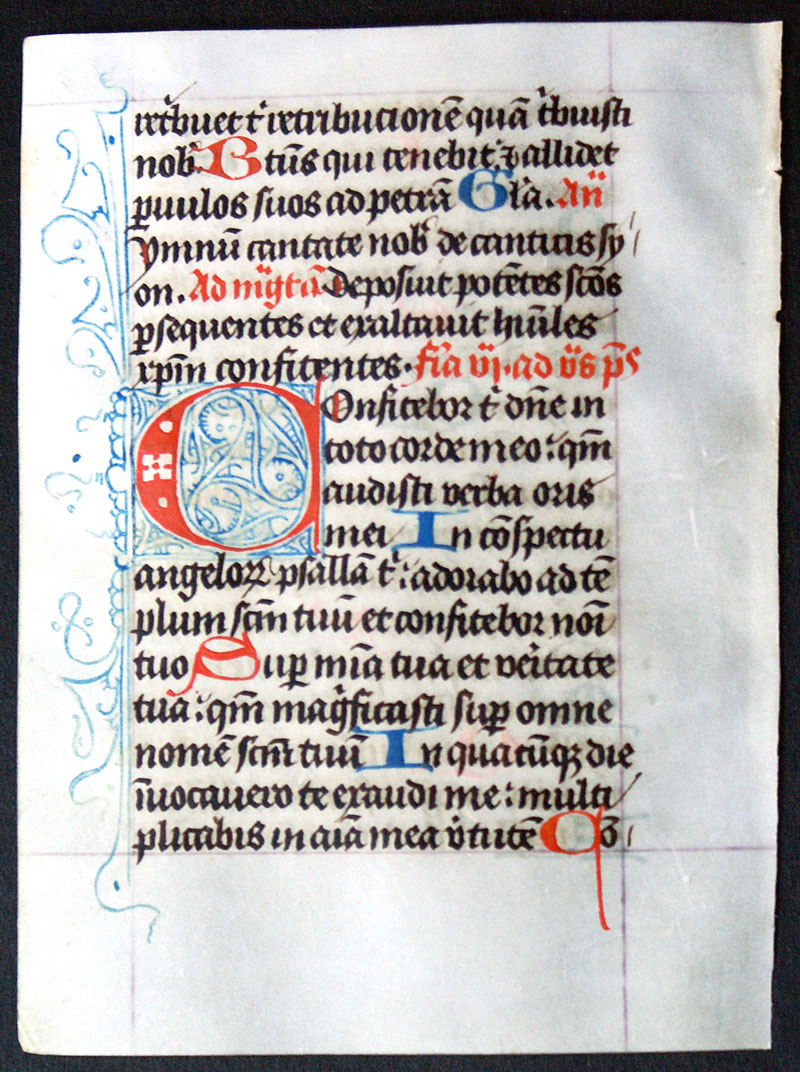 ret͛buet t͛ retribucionē quā t͛buisti
nob̾. Btūs qui tenebit ⁊ allidet
ꝑuulos suos ad petrā Gl̾a. Añ
Ymnū cantate nob̾ de canticis sy
on. Ad mg̾t̄ Deposuit potētes sc̄os
ꝑsequentes et exaltauit hūiles
xp̄m confitentes. fīa vj. ad v̄s p̄s
Confitebor t͛ dn̄e in
toto corde meo: qm̄
audisti verba oris
mei In cōspectu
angeloꝝ psallā t͛: adorabo ad tē
plum sc̄m tuū et confitebor noī
tuo Suꝑ mīa tua et ver̄itate
tua: qm̄ mag̾ficasti suꝑ omne
nomē sc̄m tuū In quacūqꝫ die
īuocauero te exaudi me: multi
plicabis in aīa mea v̾tutē Cō